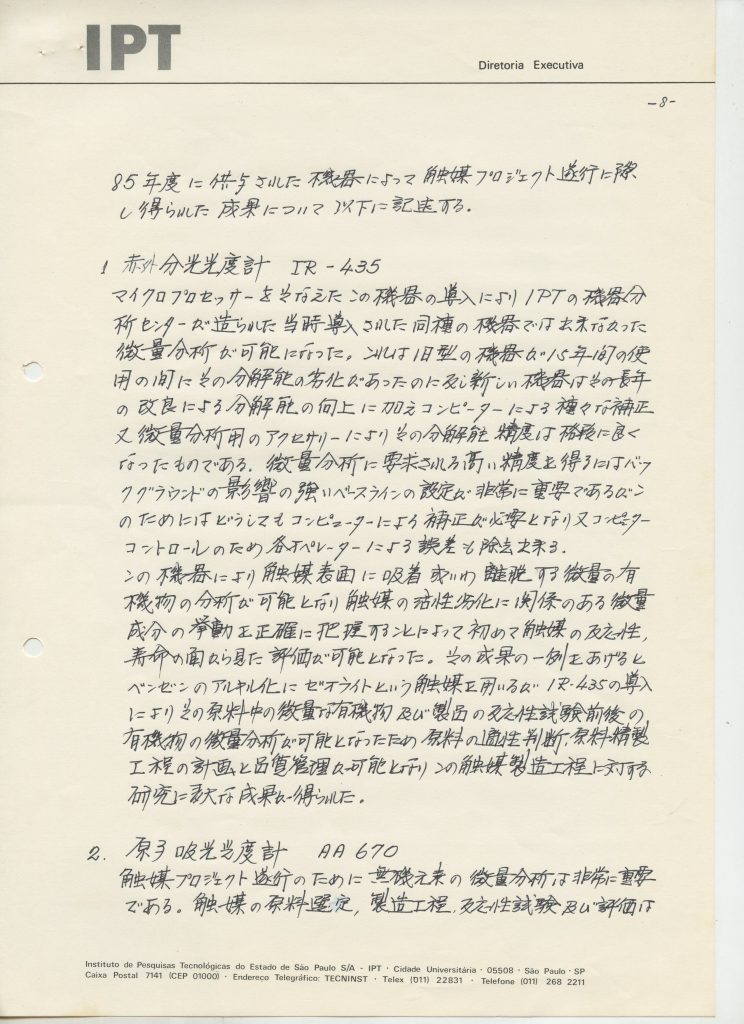 IPT
Diretoria Executiva
-8-
85年度に供与された機器によって触媒プロジェクト遂行に際
し得られた成果について以下に記述する。
1 赤外分光光度計 IR-435
マイクロプロセッサーをそなえたこの機器の導入によりIPTの機器分
析センターが造られた当時導入された同種の機器では出来なかった
微量分析が可能になった。これは旧型の機器が15年間の使
用の間にその分解能の劣化があったのに反し新しい機器はその長年
の改良による分解能の向上に加えコンピーターによる種々な補正
又微量分析用のアクセサリーによりその分解能、精度は格段に良く
なったものである。微量分析に要求される高い精度を得るにはバッ
クグラウンドの影響の強いベースラインの設定が非常に重要であるがこ
のためにはどうしてもコンピューターによる補正が必要となり又コンピーター
コントロールのため各オペレーターによる誤差も除去出来る。
この機器により触媒表面に吸着或いわ離脱する微量の有
機物の分析が可能となり触媒の活性劣化に関係のある微量
成分の挙動を正確に把握することによって初めて触媒の反応性,
寿命の面から見た評価が可能となった。その成果の一例をあげると
ベンゼンのアルキル化にゼオライトという触媒を用いるがIR-435の導入
によりその原料中の微量な有機物及び製品の反応性試験前後の
有機物の微量分析が可能となったため原料の適性判断,原料精製
工程の計画と品質管理が可能となりこの触媒製造工程に対する
研究に多大な成果が得られた。
2. 原子吸光光度計 AA 670
触媒プロジェクト遂行のために無機元素の微量分析は非常に重要
である。触媒の原料選定,製造工程,反応性試験及び評価は
Instituto de Pesquisas Tecnológicas do Estado de São Paulo S/A - IPT · Cidade Universitária · 05508 · São Paulo · SP
Caixa Postal 7141 (CEP 01000) · Endereço Telegráfico: TECNINST · Telex (011) 22831 · Telefone (011) 268 2211